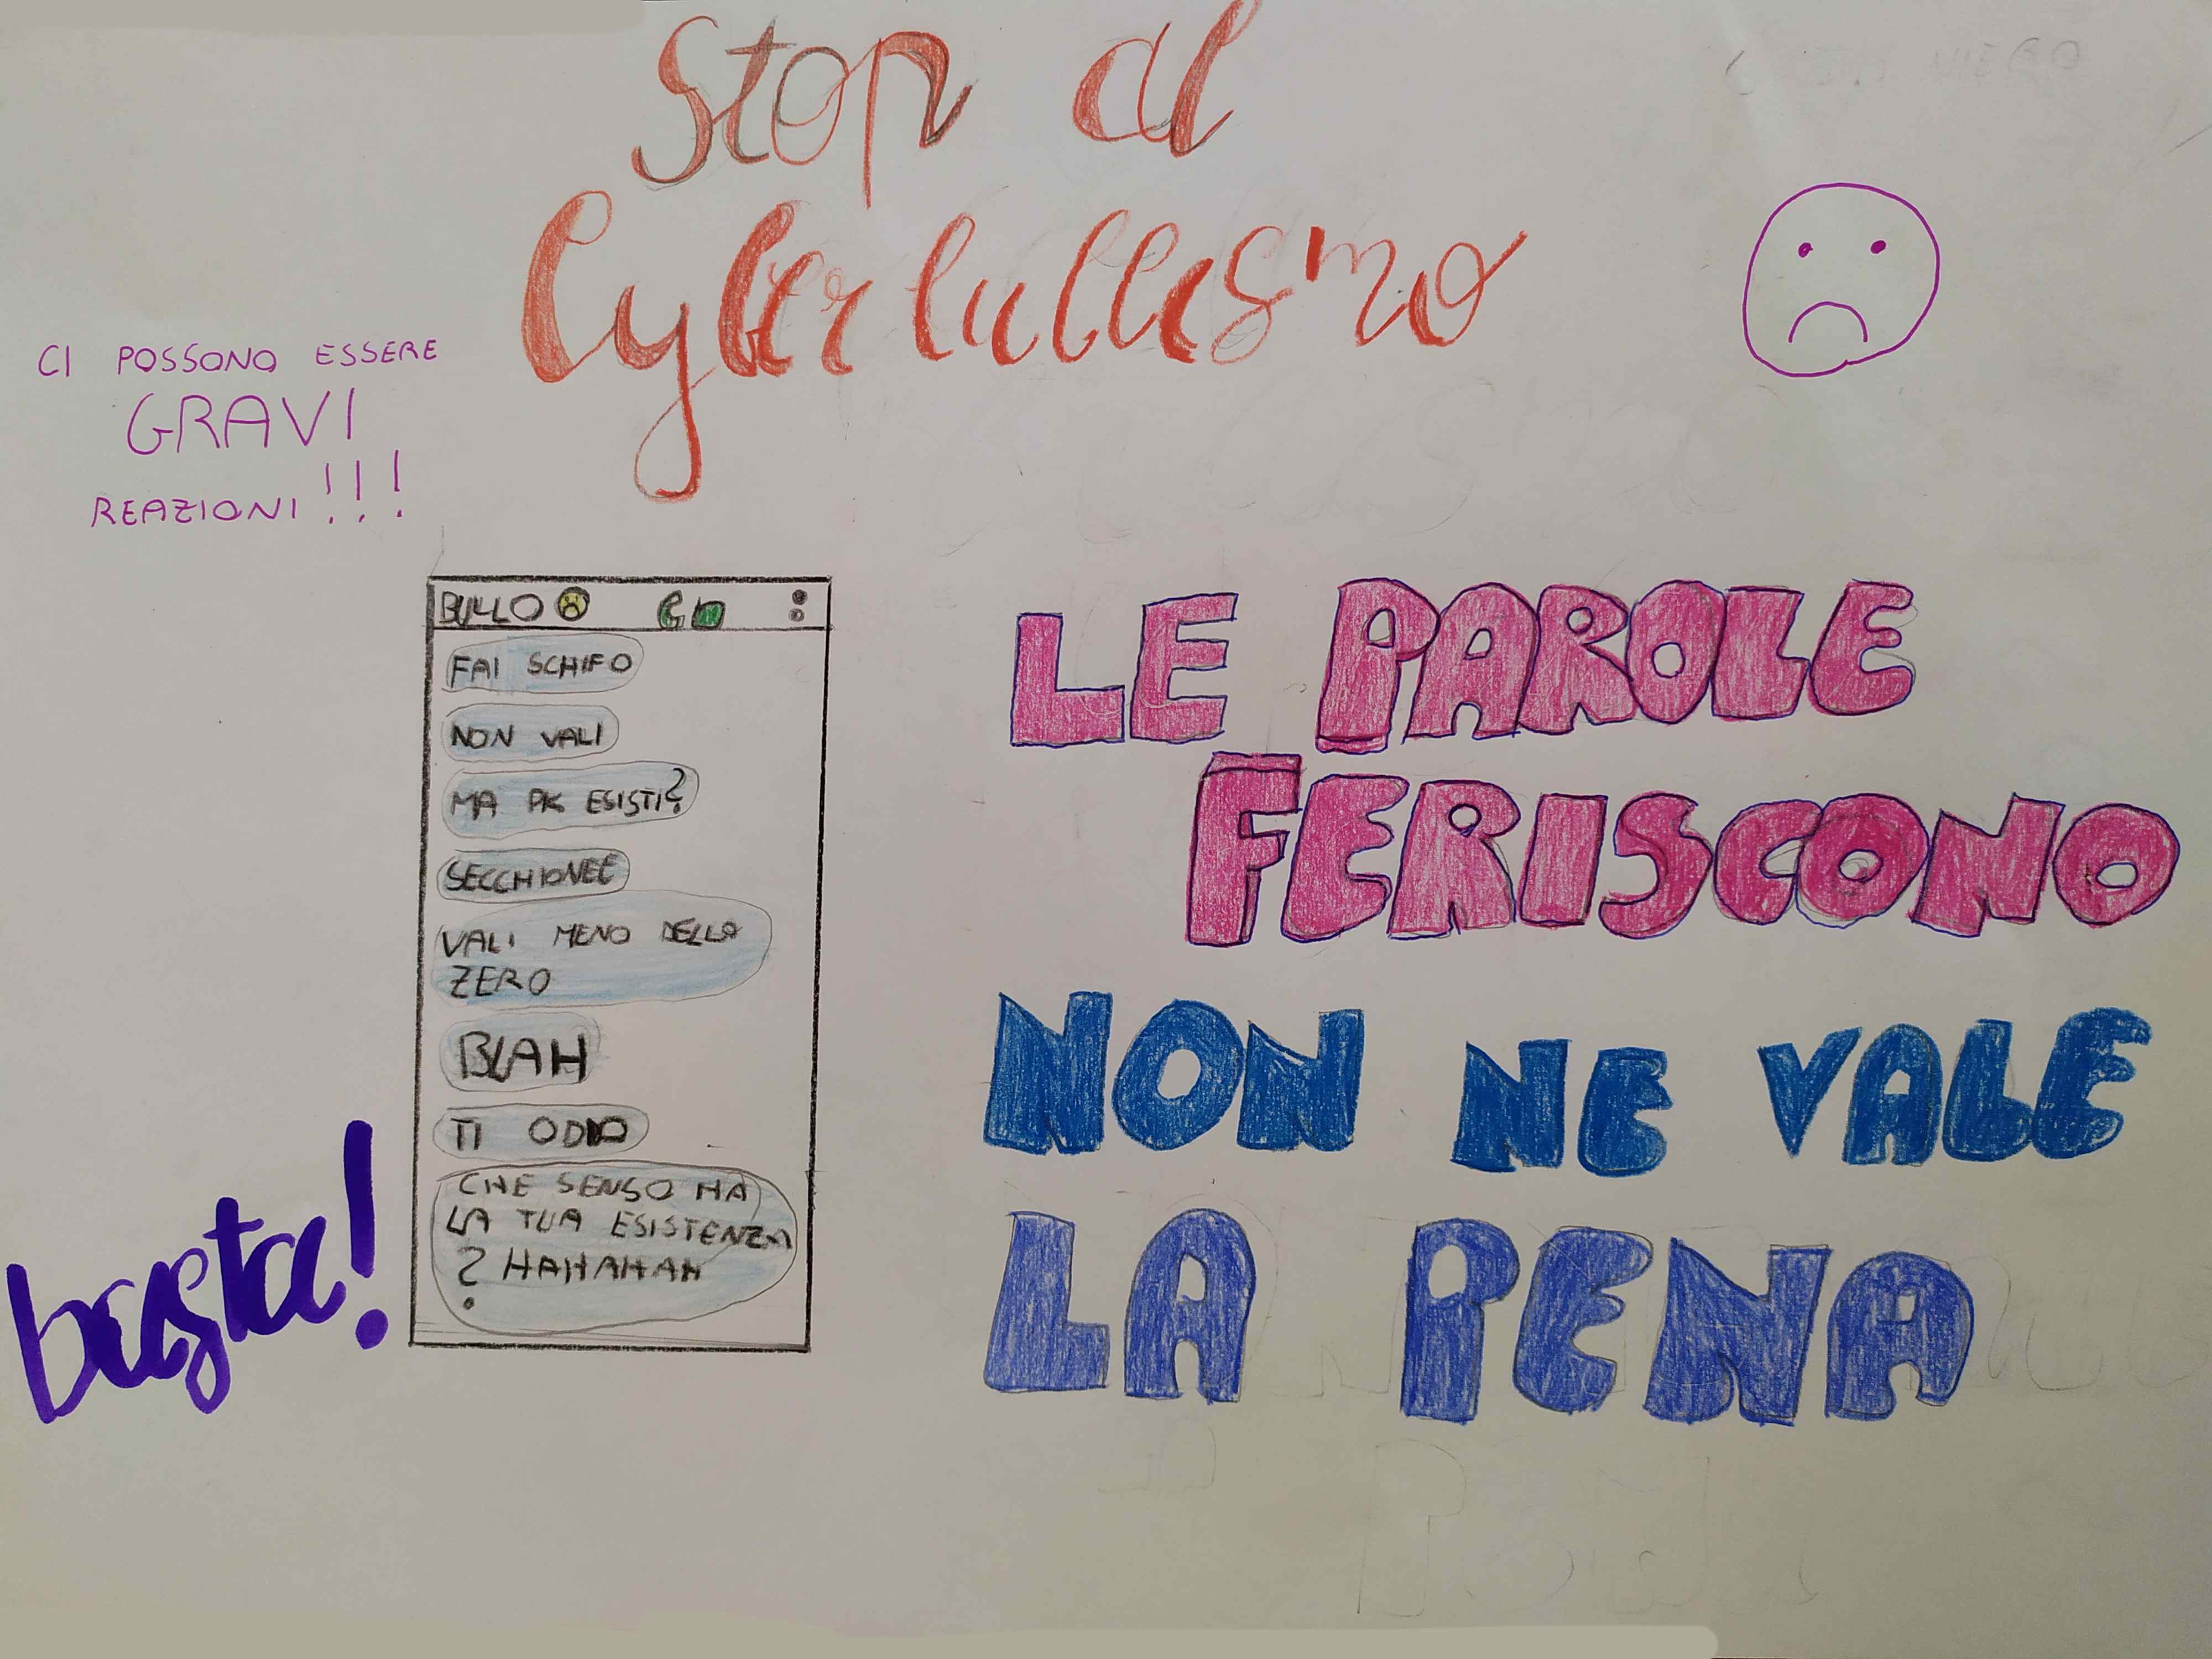 Stop al
Cyberbullismo
CI POSSONO ESSERE
GRAVI
REAZIONI!!!
BULLO
FAI SCHIFO
NON VALI
MA PK ESISTI?
SECCHIONEE
VALI MENO DELLO
ZERO
BLAH
TI ODIO
CHE SENSO HA
LA TUA ESISTENZA
? HAHAHAH
basta!
LE PAROLE
FERISCONO
NON NE VALE
LA PENA